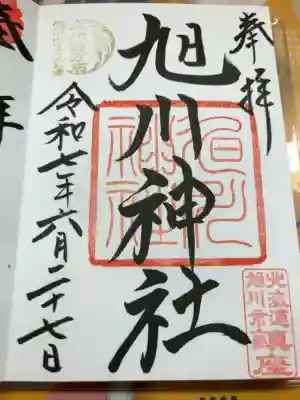 奉拝
旭川神社
令和七年六月二十七日
旭川神社
北海道
旭川市鎮座